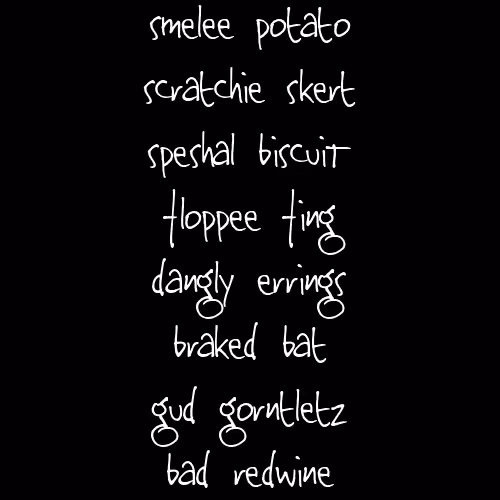 smelee potato
scratchie skert
speshal biscuit
floppee fing
dangly errings
braked bat
gud gorntletz
bad redwine